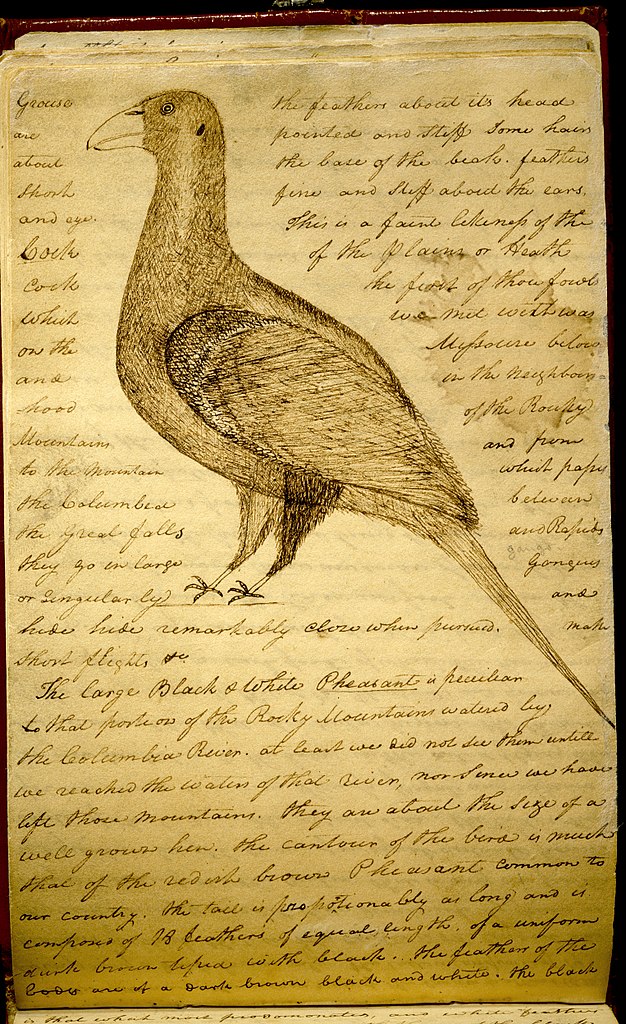 Grouse the feathers about its head
are pointed and stiff Some hairs
about the base of the beak. feathers
short fine and stiff about the ears,
and eye. This is a faint likeness of the
Cock of the plains or Heath
cock the first of those fowls
which we met with was
on the Missoure below
and in the neighbour-
hood of the Rocky
Mountains and from
to the mountain which pass
the Columbia between
the Great falls and Rapids
they go in large Gangues
or Singularly and
hide hide remarkably close when pursued. make
short flights &c
The large Black & White Pheasant is peculiar
to that portion of the Rocky Mountains watered by
the Columbia River. at least we did not see them untill
we reached the waters of that river, nor since we have
left those mountains. they are about the size of a
well grown hen. the contour of the bird is much
that of the redish brown Pheasant common to
our country. the tail is proportionably as long and is
composed of 18 feathers of equal length. of a uniform
dark brown tiped with black. the feathers of the
body are of a dark brown black and white. the black